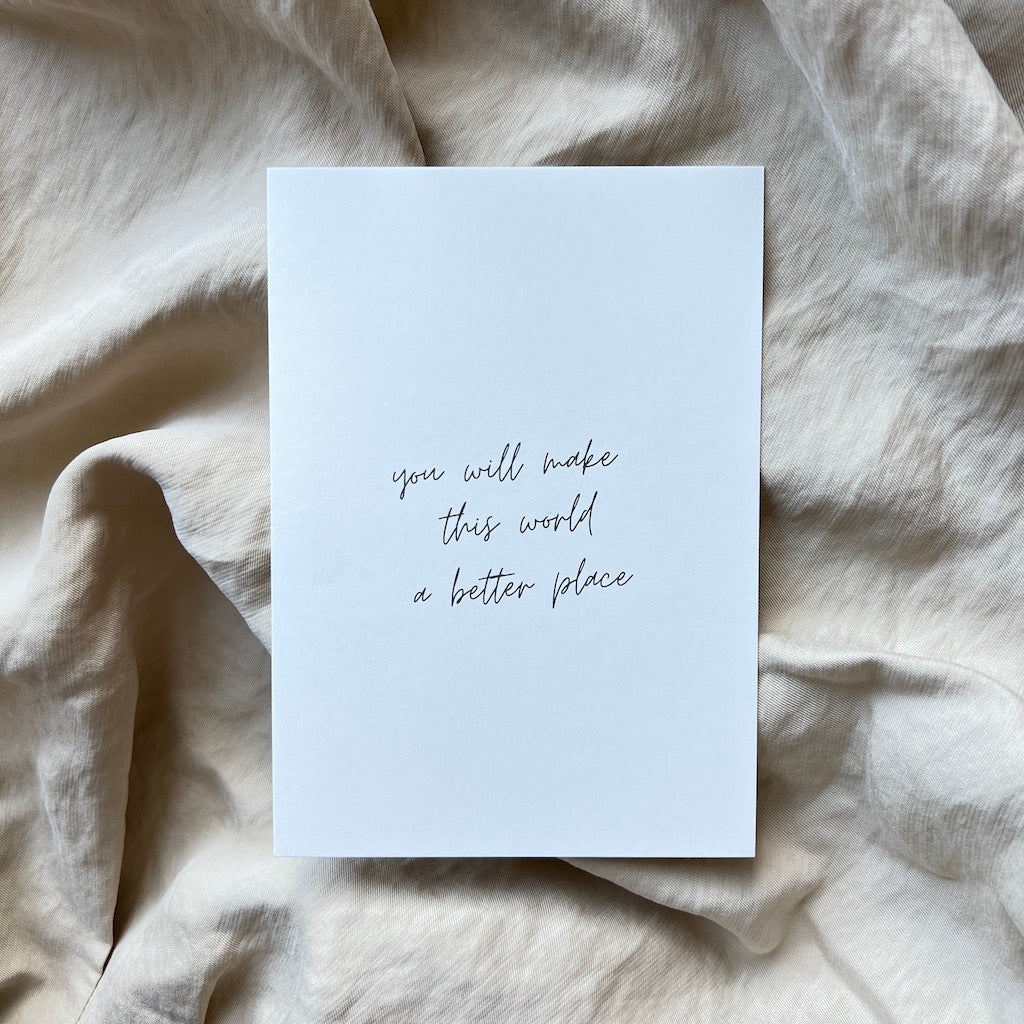 you will make
this world
a better place